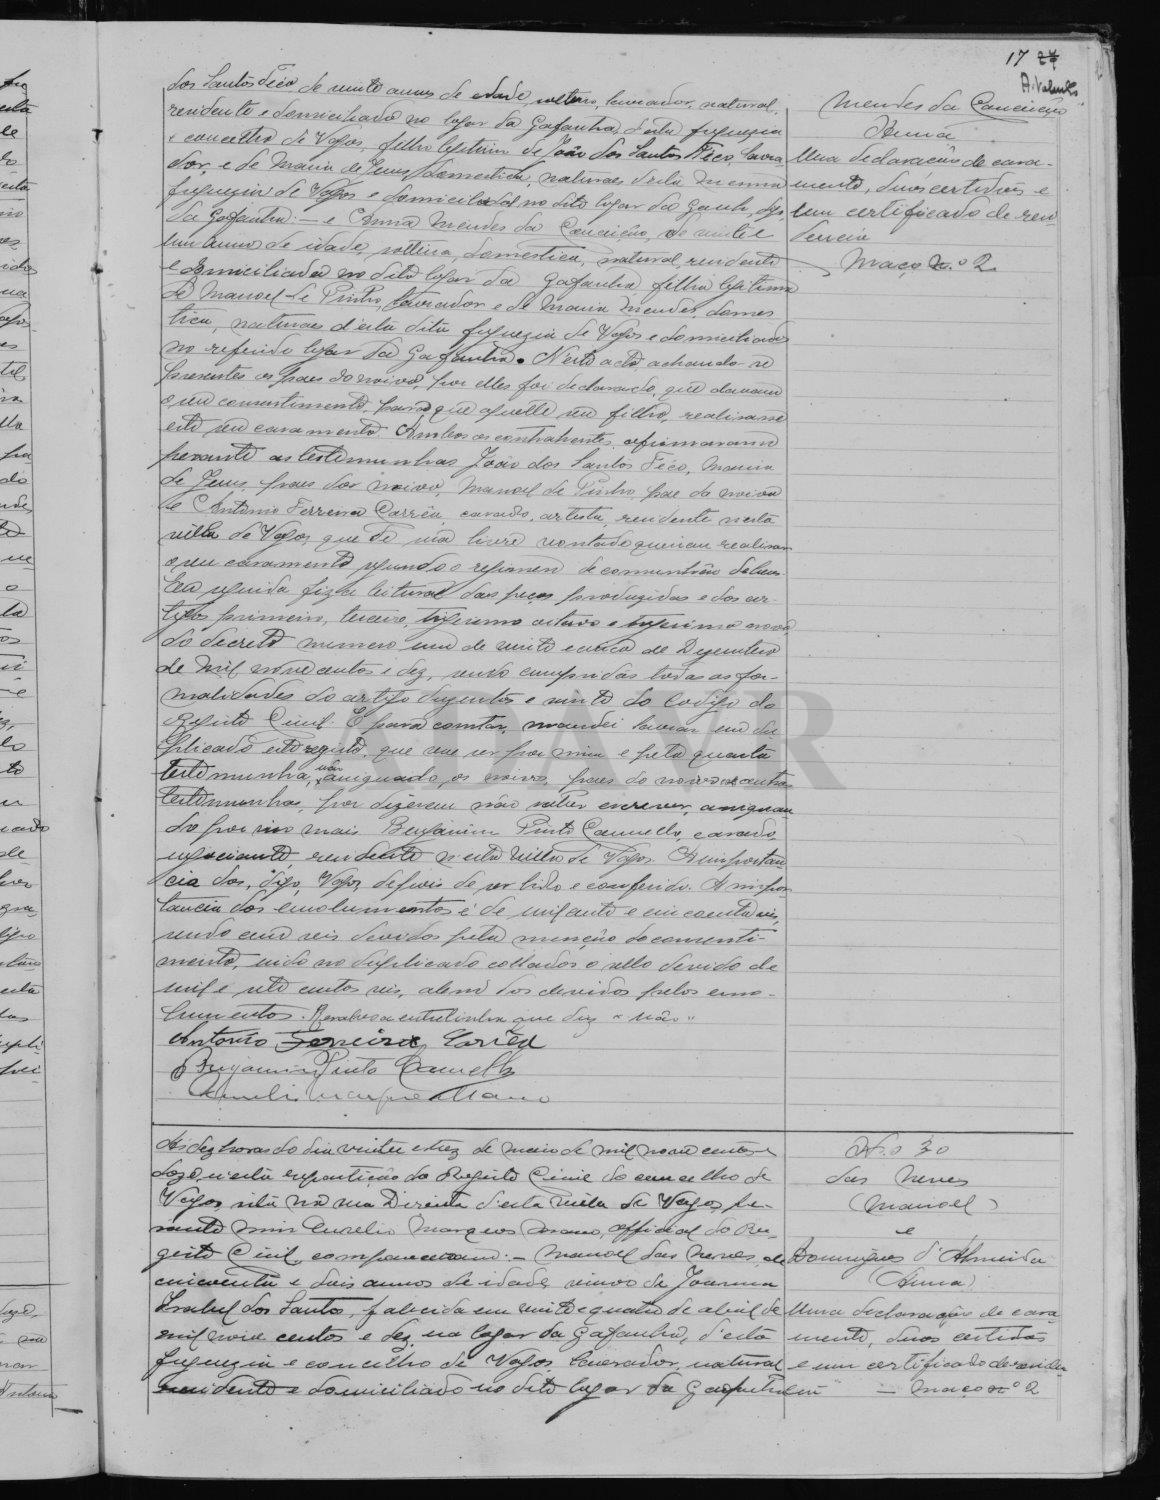 17 27
A. Valente
dos Santos Féco de vinte annos de edade, solteiro, lavrador, natural,
residente e domiciliado no logar da Gafanha, d'esta freguezia
e concelho de Vagos, filho legitimo de João dos Santos Féco, lavra-
dor, e de Maria de Jesus, domestica, naturaes d'esta mesma
freguezia de Vagos e domiciliados no dito logar da Ganh, digo,
da Gafanha: — e Anna Mendes da Conceição, de vinte e
um annos de idade, solteira, domestica, natural, residente
e domiciliada no dito logar da Gafanha filha legitima
de Manoel de Pinho, lavrador e de Maria Mendes, domes
tica, naturaes d'esta dita freguezia de Vagos e domiciliados
no referido logar da Gafanha. N'este acto, achando-se
presentes os paes do noivo, por elles foi declarado, que davam
o seu consentimento, para que aquelle seu filho, realisasse
este seu casamento. Ambos os contrahentes afirmaram
perante as testemunhas João dos Santos Féco, Maria
de Jesus, paes dos noivo, Manoel de Pinho, pae da noiva
e Antonio Ferreira Corrêa, casado, artista, residente nesta
villa de Vagos, que de sua livre vontade queriam realisar
o seu casamento segundo o regimen de comunhão de bens.
Em seguida fiz a leitura das peças produzidas e dos ar-
tigos primeiro, terceiro, trigesimo oitavo e trigesimo nono
do decreto numero um de vinte e cinco de Dezembro
de mil novecentos e dez, sendo cumpridas todas as for-
malidades do artigo duzentos e vinte do Codigo do
Registo Civil. E para constar, mandei lavrar em du
plicado este registo, que vae ser por mim e pela quarta
testemunha, não assignado, os noivos, paes do noivo e outras
testemunhas, por dizerem não saber escrever, assignan
do por isso mais Benjamim Pinto Camello, casado,
negociante, residente n'esta villa de Vagos. A importan
cia dos, digo, Vagos, depois de ser lido e conferido. A impor
tancia dos emolumentos é de mil cento e cincoenta reis,
sendo cem reis devidos pela menção do consenti-
mento, indo no duplicado collados o sello devido de
mil e sete centos reis, alem dos devidos pelos emo-
lumentos. Resalvo a entrelinha que diz "não"
Antonio Ferreira Corrêa
Benjamim Pinto Camello
Aurelio Marques Mano
Mendes da Conceição
Anna
Uma declaração de casa-
mento, duas certidões e
um certificado de resi-
dencia
Maço n.º 2
Ás dez horas do dia vinte e trez de maio de mil nove centos e
doze, n'esta repartição do Registo Civil do concelho de
Vagos, sita na rua Direita d'esta villa de Vagos pe-
rante mim Aurelio Marques Mano, official do Re-
gisto Civil, compareceram: — Manoel das Neves, de
cincoenta e dois annos de idade, viuvo de Joanna
Isabel dos Santos, falecida em vinte e quatro de abril de
mil nove centos e dez, no logar da Gafanha, d'esta
freguezia e concelho de Vagos, lavrador, natural
residente e domiciliado no dito logar da Gafanha
N.º 30
das Neves
(Manoel)
e
Domingues d'Almeida
(Anna)
Uma declaração de casa
mento, duas certidões
e um certificado de residen
— maço n.º 2